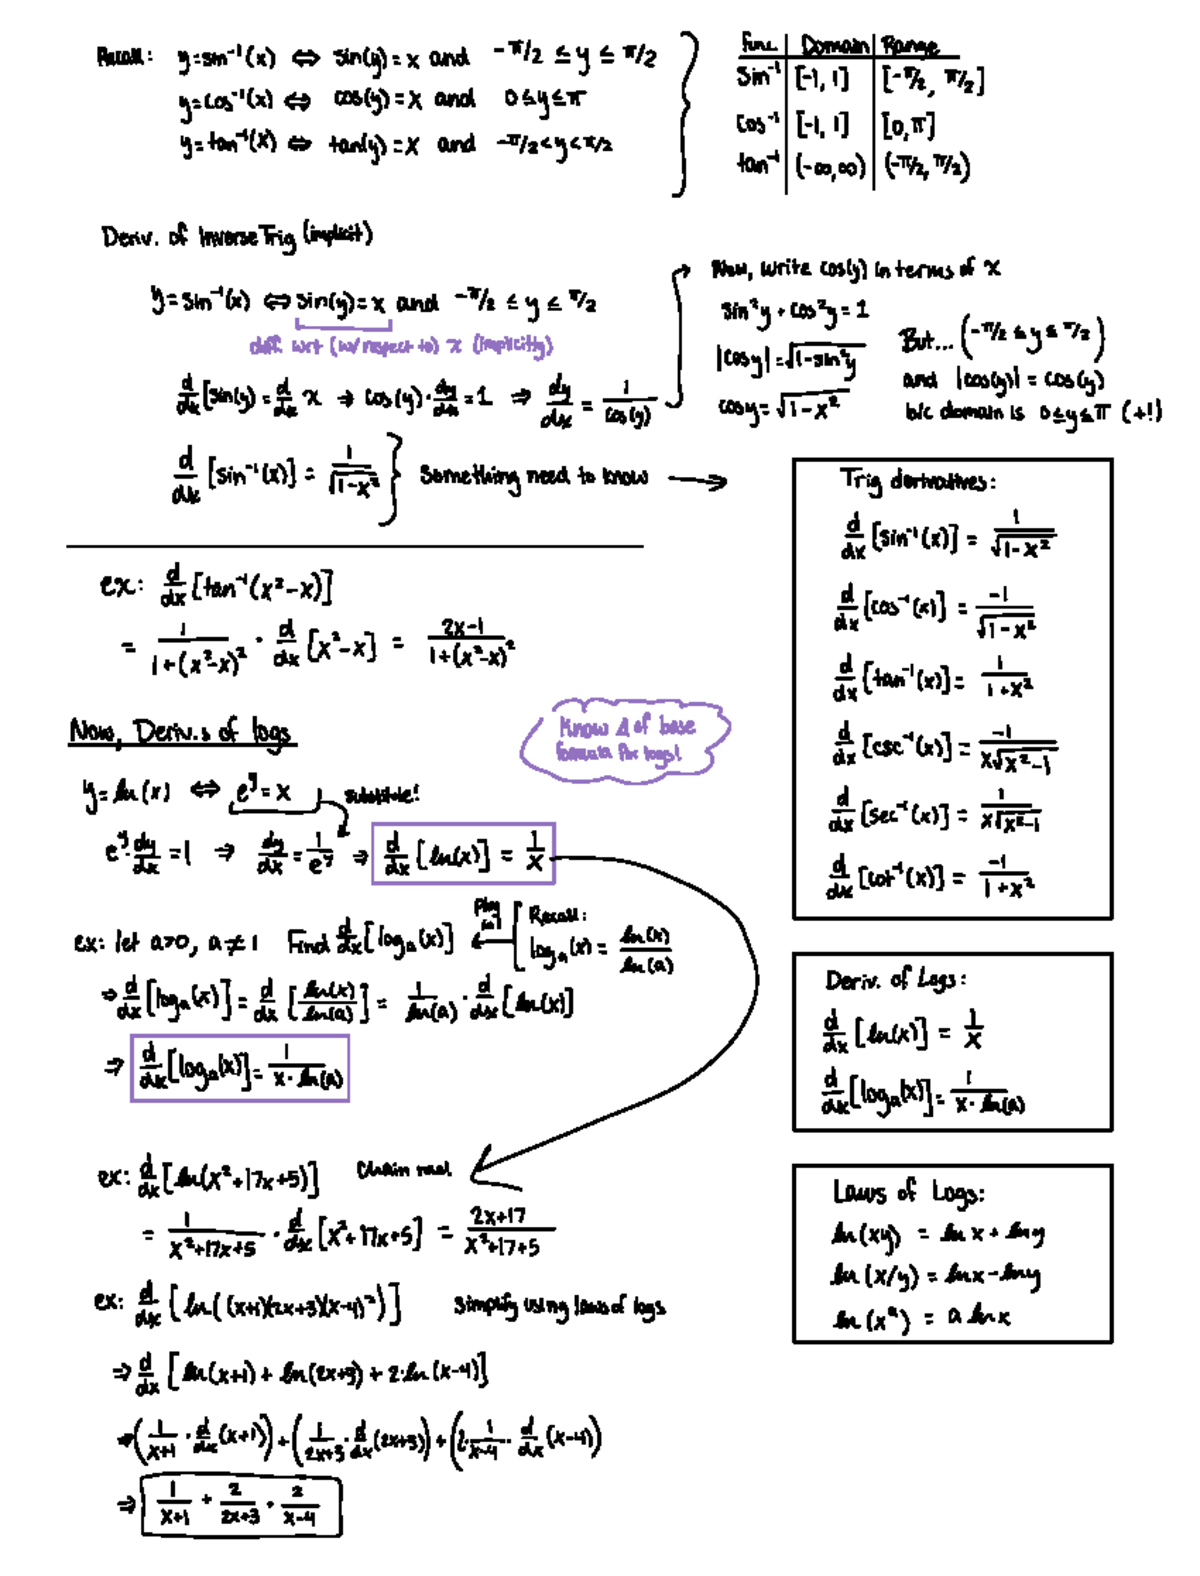 Recall: y=sin⁻¹(x) ⇔ sin(y)=x and -π/2 ≤ y ≤ π/2
y=cos⁻¹(x) ⇔ cos(y)=x and 0≤y≤π
y=tan⁻¹(x) ⇔ tan(y)=x and -π/2<y<π/2
Func. | Domain | Range
Sin⁻¹ | [-1, 1] | [-π/2, π/2]
Cos⁻¹ | [-1, 1] | [0, π]
tan⁻¹ | (-∞,∞) | (-π/2, π/2)
Deriv. of Inverse Trig (implicit)
y=sin⁻¹(x) ⇔ sin(y)=x and -π/2 ≤ y ≤ π/2
diff. wrt (w/ respect to) x (implicitly)
d/dx [sin(y) = d/dx x → cos(y)·dy/dx = 1 ⇒ dy/dx = 1/cos(y)
Now, write cos(y) in terms of x
sin²y + cos²y = 1
|cos y| = √(1-sin²y)
cosy = √(1-x²)
But... (-π/2 ≤ y ≤ π/2)
and |cos(y)| = cos(y)
b/c domain is 0≤y≤π (+!)
d/dx [sin⁻¹(x)] = 1/√(1-x²) } Something need to know →
Trig derivatives:
d/dx [sin⁻¹(x)] = 1/√(1-x²)
d/dx [cos⁻¹(x)] = -1/√(1-x²)
d/dx [tan⁻¹(x)] = 1/(1+x²)
d/dx [csc⁻¹(x)] = -1/(x√(x²-1))
d/dx [sec⁻¹(x)] = 1/(x√(x²-1))
d/dx [cot⁻¹(x)] = -1/(1+x²)
ex: d/dx [tan⁻¹(x²-x)]
= 1/(1+(x²-x)²) · d/dx [x²-x] = (2x-1)/(1+(x²-x)²)
Now, Deriv.s of logs
Know Δ of base
formula for logs!
y=ln(x) ⇔ e^y = x substitute!
e^y·dy/dx = 1 ⇒ dy/dx = 1/e^y ⇒ d/dx [ln(x)] = 1/x
ex: let a>0, a≠1 Find d/dx [logₐ(x)]
Plug in!
Recall:
logₐ(x) = ln(x)/ln(a)
⇒ d/dx [logₐ(x)] = d/dx [ln(x)/ln(a)] = 1/ln(a) · d/dx [ln(x)]
⇒ d/dx [logₐ(x)] = 1/(x·ln(a))
Deriv. of Logs:
d/dx [ln(x)] = 1/x
d/dx [logₐ(x)] = 1/(x·ln(a))
ex: d/dx [ln(x²+17x+5)] Chain rule
= 1/(x²+17x+5) · d/dx [x²+17x+5] = (2x+17)/(x²+17+5)
Laws of Logs:
ln(xy) = ln x + ln y
ln(x/y) = lnx - lny
ln(xᵃ) = a lnx
ex: d/dx [ln((x+1)(2x+3)(x-4)²)] Simplify using laws of logs
⇒ d/dx [ln(x+1) + ln(2x+3) + 2·ln(x-4)]
⇒ (1/(x+1) · d/dx (x+1)) + (1/(2x+3) · d/dx (2x+3)) + (2·1/(x-4) · d/dx (x-4))
⇒ 1/(x+1) + 2/(2x+3) + 2/(x-4)